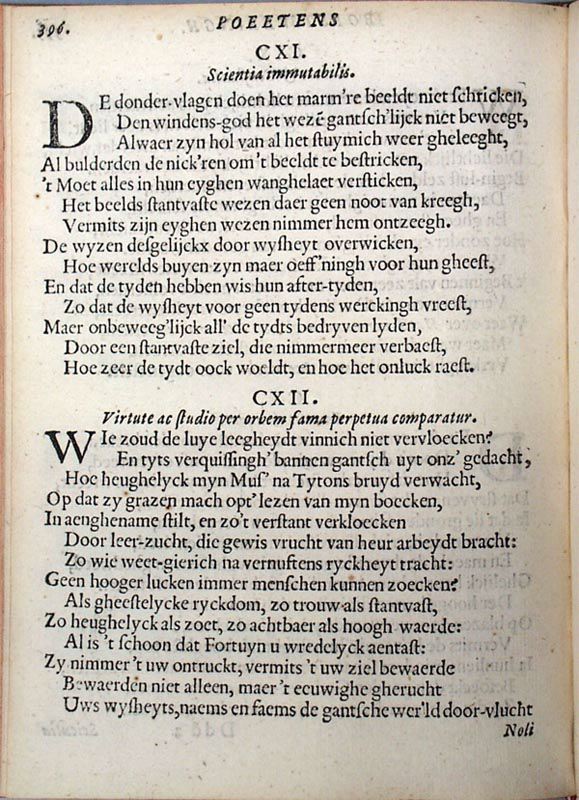 396. POEETENS
CXI.
Scientia immutabilis.
DE donder-vlagen doen het marm're beeldt niet schricken,
Den windens-god het wezē gantsch'lijck niet beweegt,
Alwaer zyn hol van al het stuymich weer gheleeght,
Al bulderden de nick'ren om 't beeldt te bestricken,
't Moet alles in hun eyghen wanghelaet versticken,
Het beelds stantvaste wezen daer geen noot van kreegh,
Vermits zijn eyghen wezen nimmer hem ontzeegh.
De wyzen desgelijckx door wysheyt overwicken,
Hoe werelds buyen zyn maer oeff'ningh voor hun gheest,
En dat de tyden hebben wis hun after-tyden,
Zo dat de wysheyt voor geen tydens werckingh vreest,
Maer onbeweeg'lijck all' de tydts bedryven lyden,
Door een stantvaste ziel, die nimmermeer verbaest,
Hoe zeer de tydt oock woeldt, en hoe het onluck raest.
CXII.
Virtute ac studio per orbem fama perpetua comparatur.
WIe zoud de luye leegheydt vinnich niet vervloecken?
En tyts verquissingh' bannen gantsch uyt onz' gedacht,
Hoe heughelyck myn Mus' na Tytons bruyd verwacht,
Op dat zy grazen mach opt' lezen van myn boecken,
In aenghename stilt, en zo't verstant verkloecken
Door leer-zucht, die gewis vrucht van heur arbeydt bracht:
Zo wie weet-gierich na vernuftens ryckheyt tracht:
Geen hooger lucken immer menschen kunnen zoecken?
Als gheestelycke ryckdom, zo trouw als stantvast,
Zo heughelyck als zoet, zo achtbaer als hoogh waerde:
Al is 't schoon dat Fortuyn u wredelyck aentast:
Zy nimmer 't uw ontruckt, vermits 't uw ziel bewaerde
Bewaerden niet alleen, maer 't eeuwighe gherucht
Uws wysheyts, naems en faems de gantsche wer'ld door-vlucht
Noli